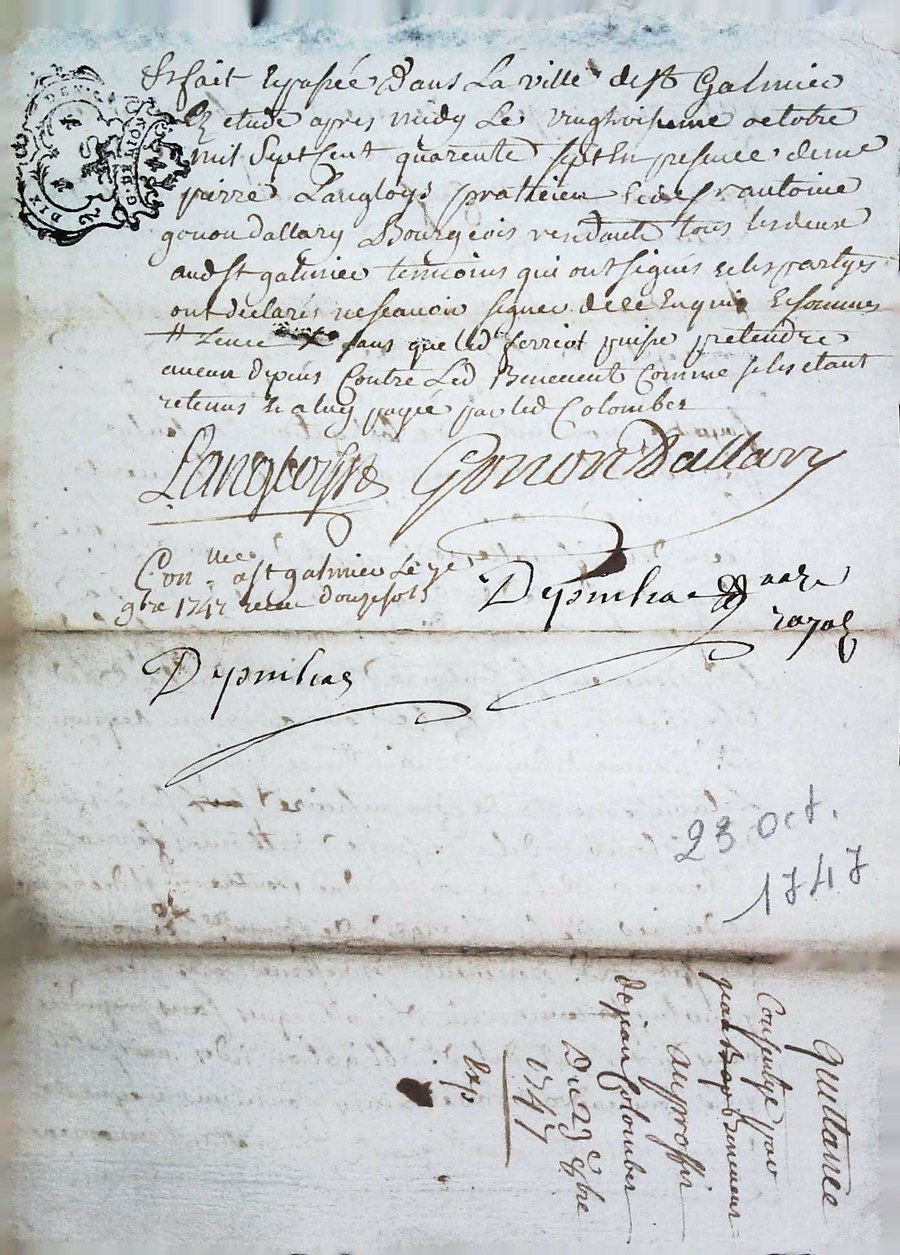 et fait et passée dans La ville de st Galmier
Ez etude apres midy Le vingtroisieme octobre
mil sept cent quarente sept en presence de me
pierre Langloys praticien et de sr antoine
gonon dallary Bourgeois tous les deux
aud st galmier temoins qui ont signés et les partyes
ont declarés ne scavoir signer de ce Enquis Et sommes
sans que led ferriot puisse pretendre
aucun depens Contre Led Benevent Comme
retenus et a luy payée par led Colombet
Langloys Gonon Dallary
Con lle a st galmier Le
9bre 1747 recu douze sols
Depinhac
Depinhac
DIX DEN
23 oct.
1747
quittance
Consentye par
jean Bap Benevent
au proffit
de jean Colombet
Du 23 8bre
1747
Exp